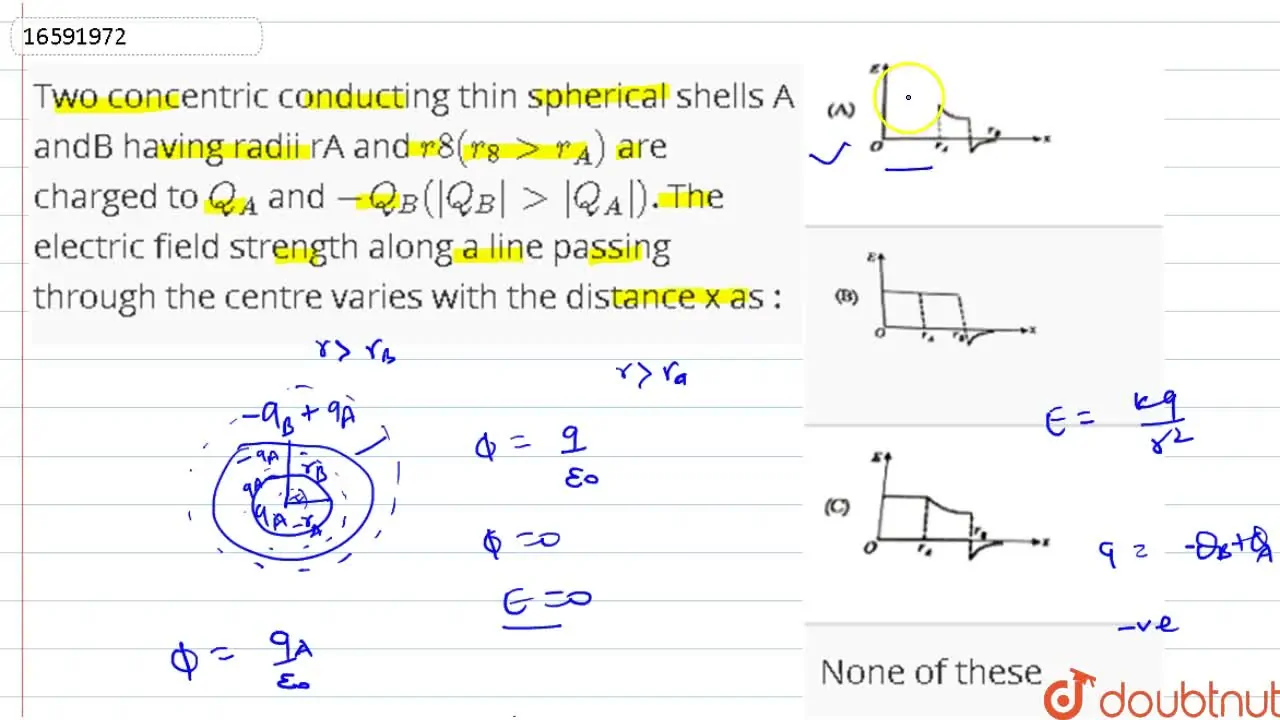 16591972
Two concentric conducting thin spherical shells A
andB having radii rA and r8(r₈ > r_A) are
charged to Q_A and −Q_B(|Q_B| > |Q_A|). The
electric field strength along a line passing
through the centre varies with the distance x as :
(A)
E
O
r_A
r_B
x
(B)
E
O
r_A
r_B
x
(C)
E
O
r_A
r_B
x
None of these
r > r_B
r > r_a
-q_B + q_A
-q_A
r_B
q_A
q_A
r_A
ϕ = q/ε₀
ϕ = 0
E = 0
ϕ = q_A/ε₀
E = kq/r²
q = -Q_B + Q_A
-ve
doubtnut